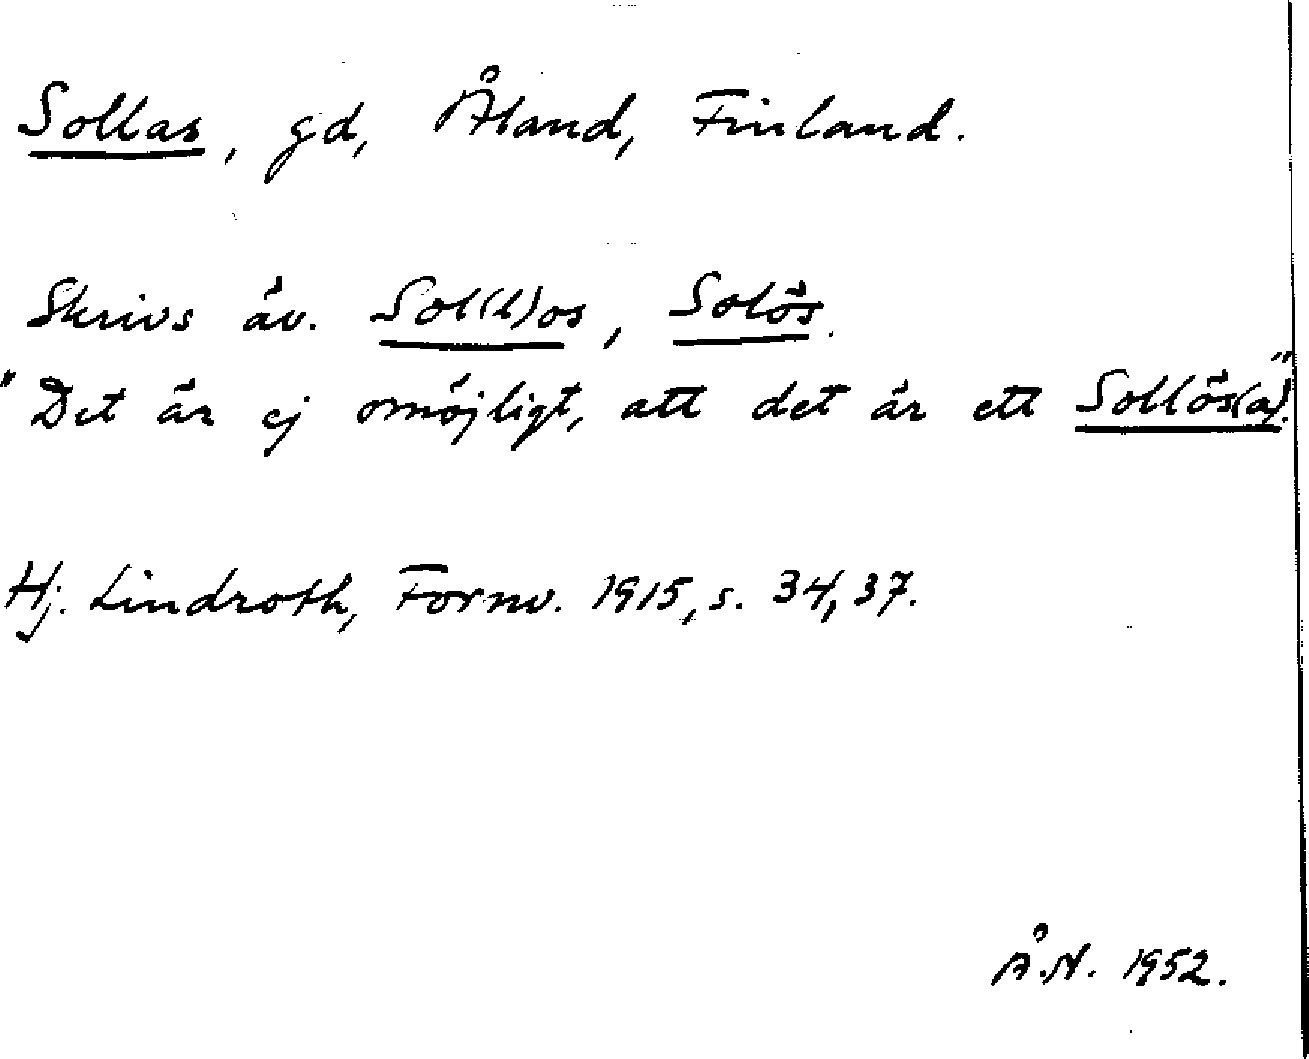 Sollas, gd, Åland, Finland.
Skrivs äv. Sol(l)os, Solös.
"Det är ej omöjligt, att det är ett Sollös(a)".
Hj. Lindroth, Fornv. 1915, s. 34, 37.
Å.N. 1952.